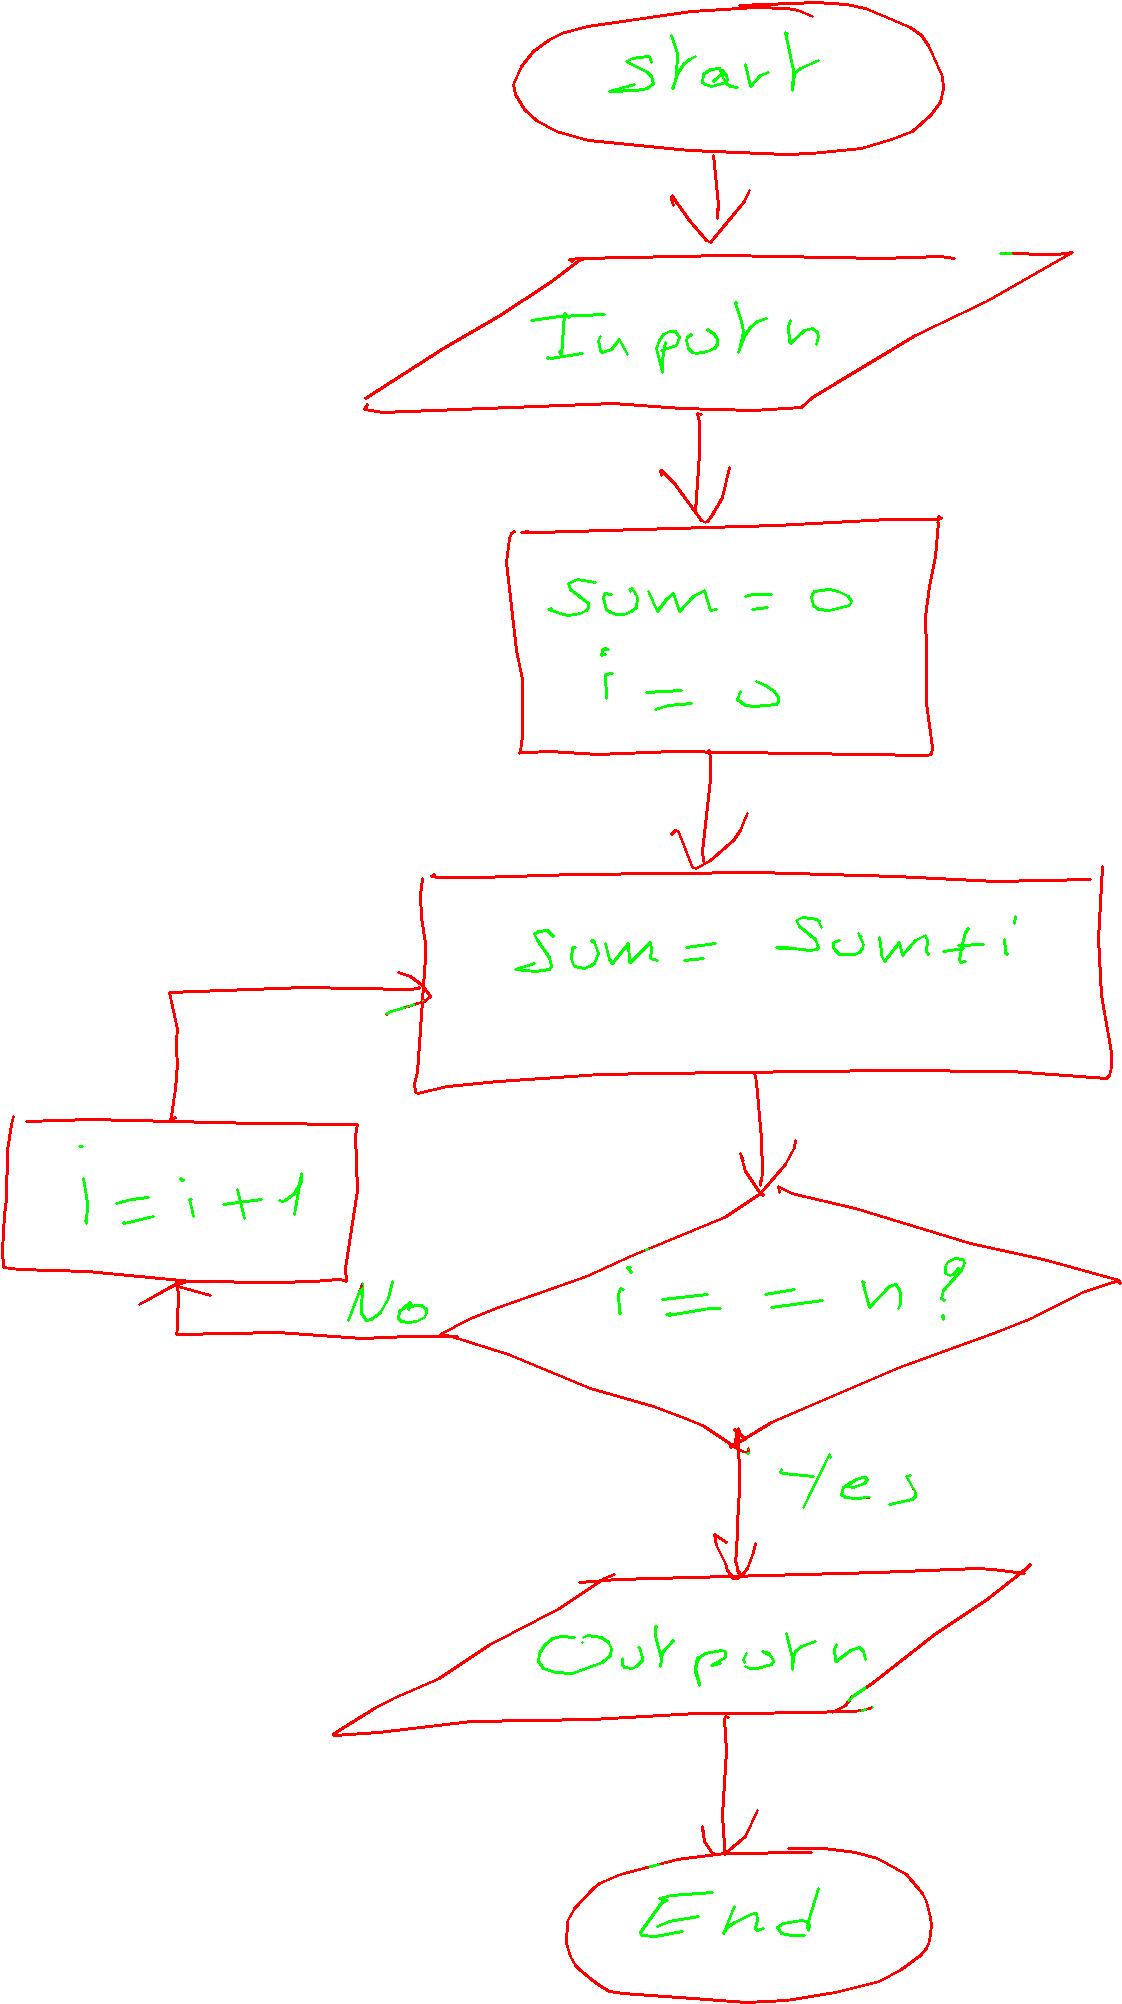 Start
Input n
Sum = 0
i = 0
Sum = Sum + i
i = i + 1
i = = n ?
No
Yes
Output n
End